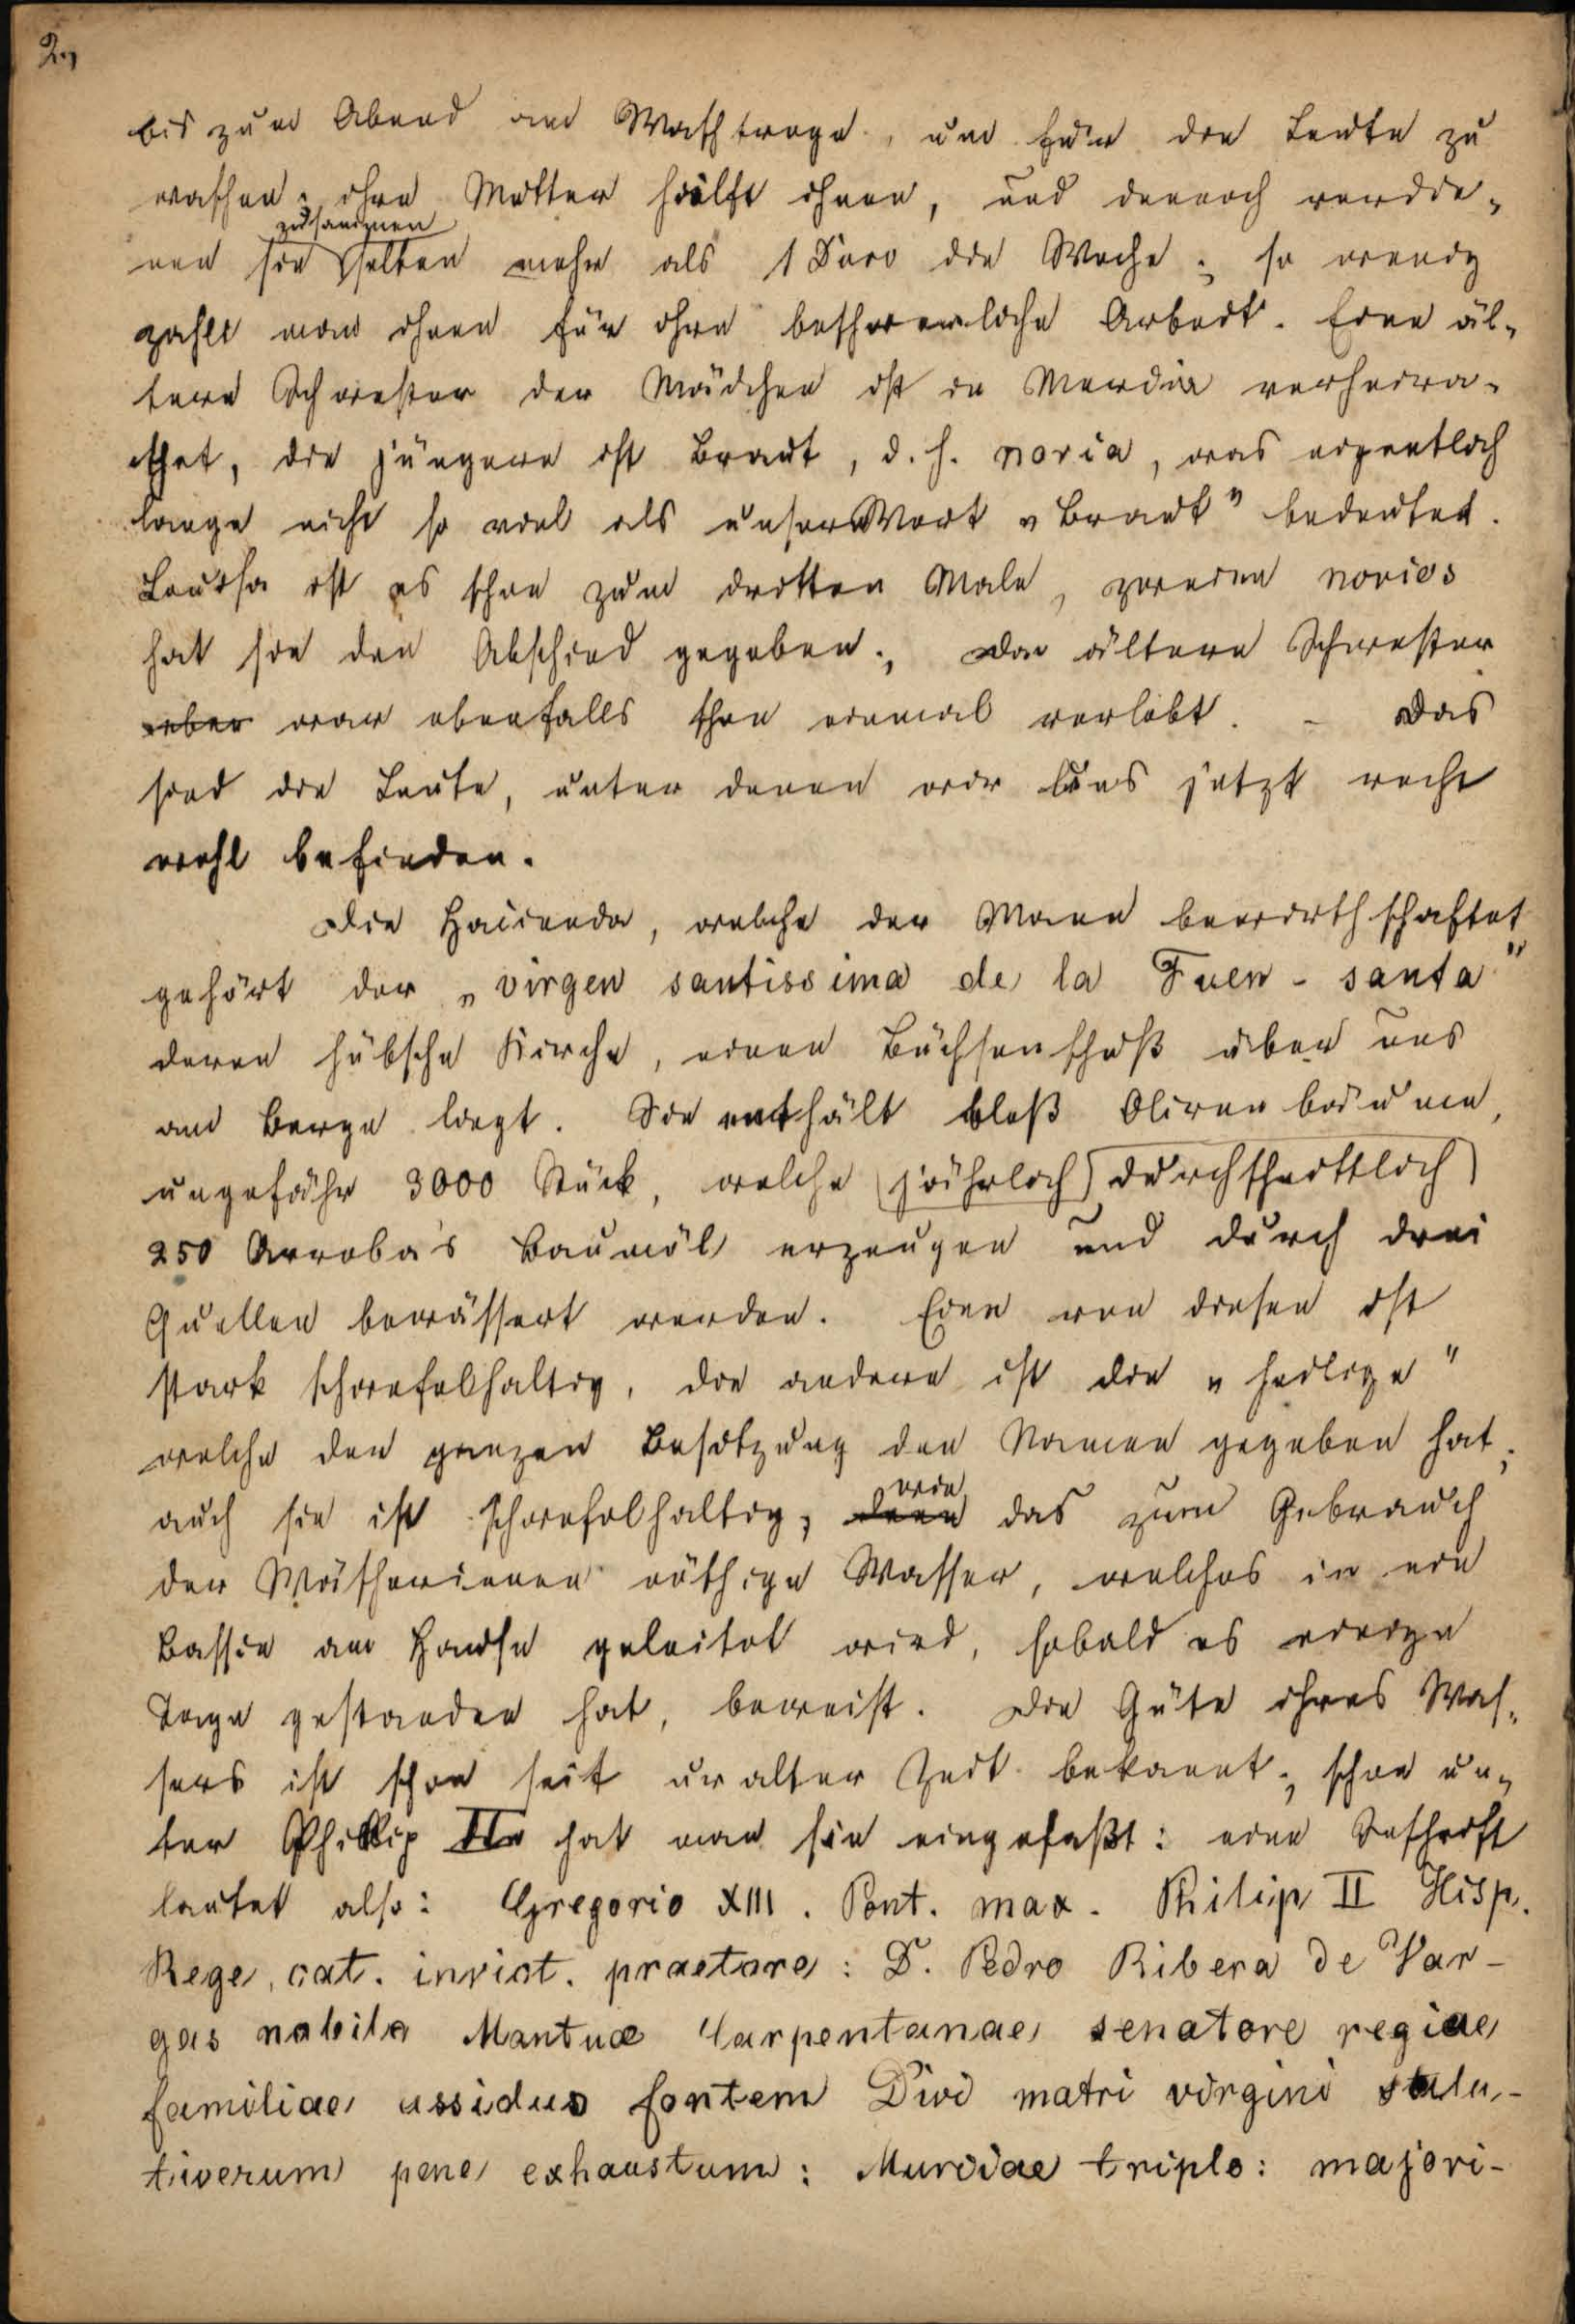 2.,
bis zum Abend am Waschtroge, um für die Leute zu
waschen; ihre Mutter hilft ihnen, und dennoch verdie-
zusammen
nen sie selten mehr als 1 Duro die Woche; so wenig
zahlt man ihnen für ihre beschwerliche Arbeit. Eine äl-
tere Schwester der Mädchen ist in Murcia verheira-
thet, die jüngere ist Braut, d. h. novia, was eigentlich
lange nicht so viel als unser Wort „Braut" bedeutet.
Louisa ist es schon zum dritten Male, zweien novios
hat sie den Abschied gegeben; die ältere Schwester
aber war ebenfalls schon einmal verlobt. – Das
sind die Leute, unter denen wir uns jetzt recht
wohl befinden.
Die Hacienda, welche der Mann bewirthschaftet
gehört der „virgen santissima de la Fuen-santa"
deren hübsche Kirche, einen Büchsenschuß über uns
am Berge liegt. Sie enthält bloß Olivenbäume,
ungefähr 3000 Stück, welche jährlich durchschnittlich
250 Arroba's Baumöl erzeugen und durch drei
Quellen bewässert werden. Eine von diesen ist
stark schwefelhaltig, die andere ist die „heilige"
welche der ganzen Besitzung den Namen gegeben hat;
wie
auch sie ist schwefelhaltig, denn das zum Gebrauch
der Wäscherinnen nöthige Wasser, welches in ein
Bassin am Hause geleitet wird, sobald es einige
Tage gestanden hat, beweist. Die Güte ihres Was-
sers ist schon seit uralter Zeit bekannt; schon un-
ter Philip II hat man sie eingefaßt: eine Inschrift
lautet also: Gregorio XIII. Pont. max. Philip II Hisp.
Rege, cat. invict. praetore: D. Pedro Ribera de Var-
gas nobile Mantuae Carpentanae senatore regiae
familiae assiduo fontem Divi matri virgini salu-
tiverum pene exhaustum: Murciae triplo: majori-